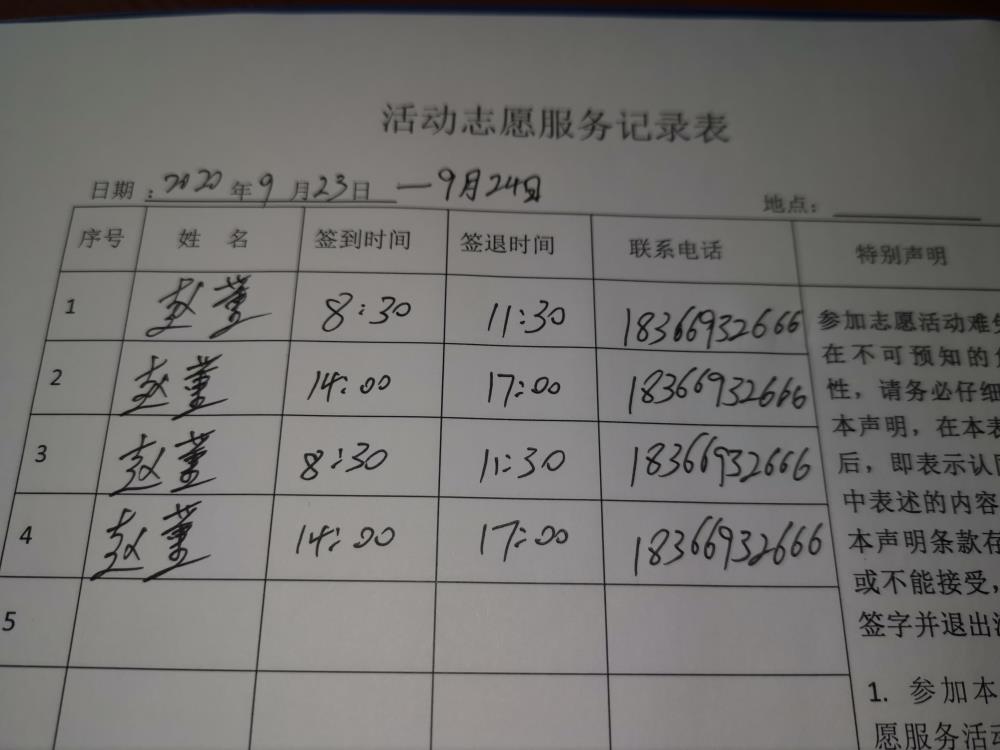 活动志愿服务记录表
日期：2020年9月23日 — 9月24日
地点：
序号 姓 名 签到时间 签退时间 联系电话 特别声明
1 赵董 8:30 11:30 18366932666
2 赵董 14:00 17:00 18366932666
3 赵董 8:30 11:30 18366932666
4 赵董 14:00 17:00 18366932666
5
参加志愿活动难
在不可预知的
性，请务必仔细
本声明，在本表
后，即表示认同
中表述的内容
本声明条款存
或不能接受，
签字并退出
1. 参加本
愿服务活动